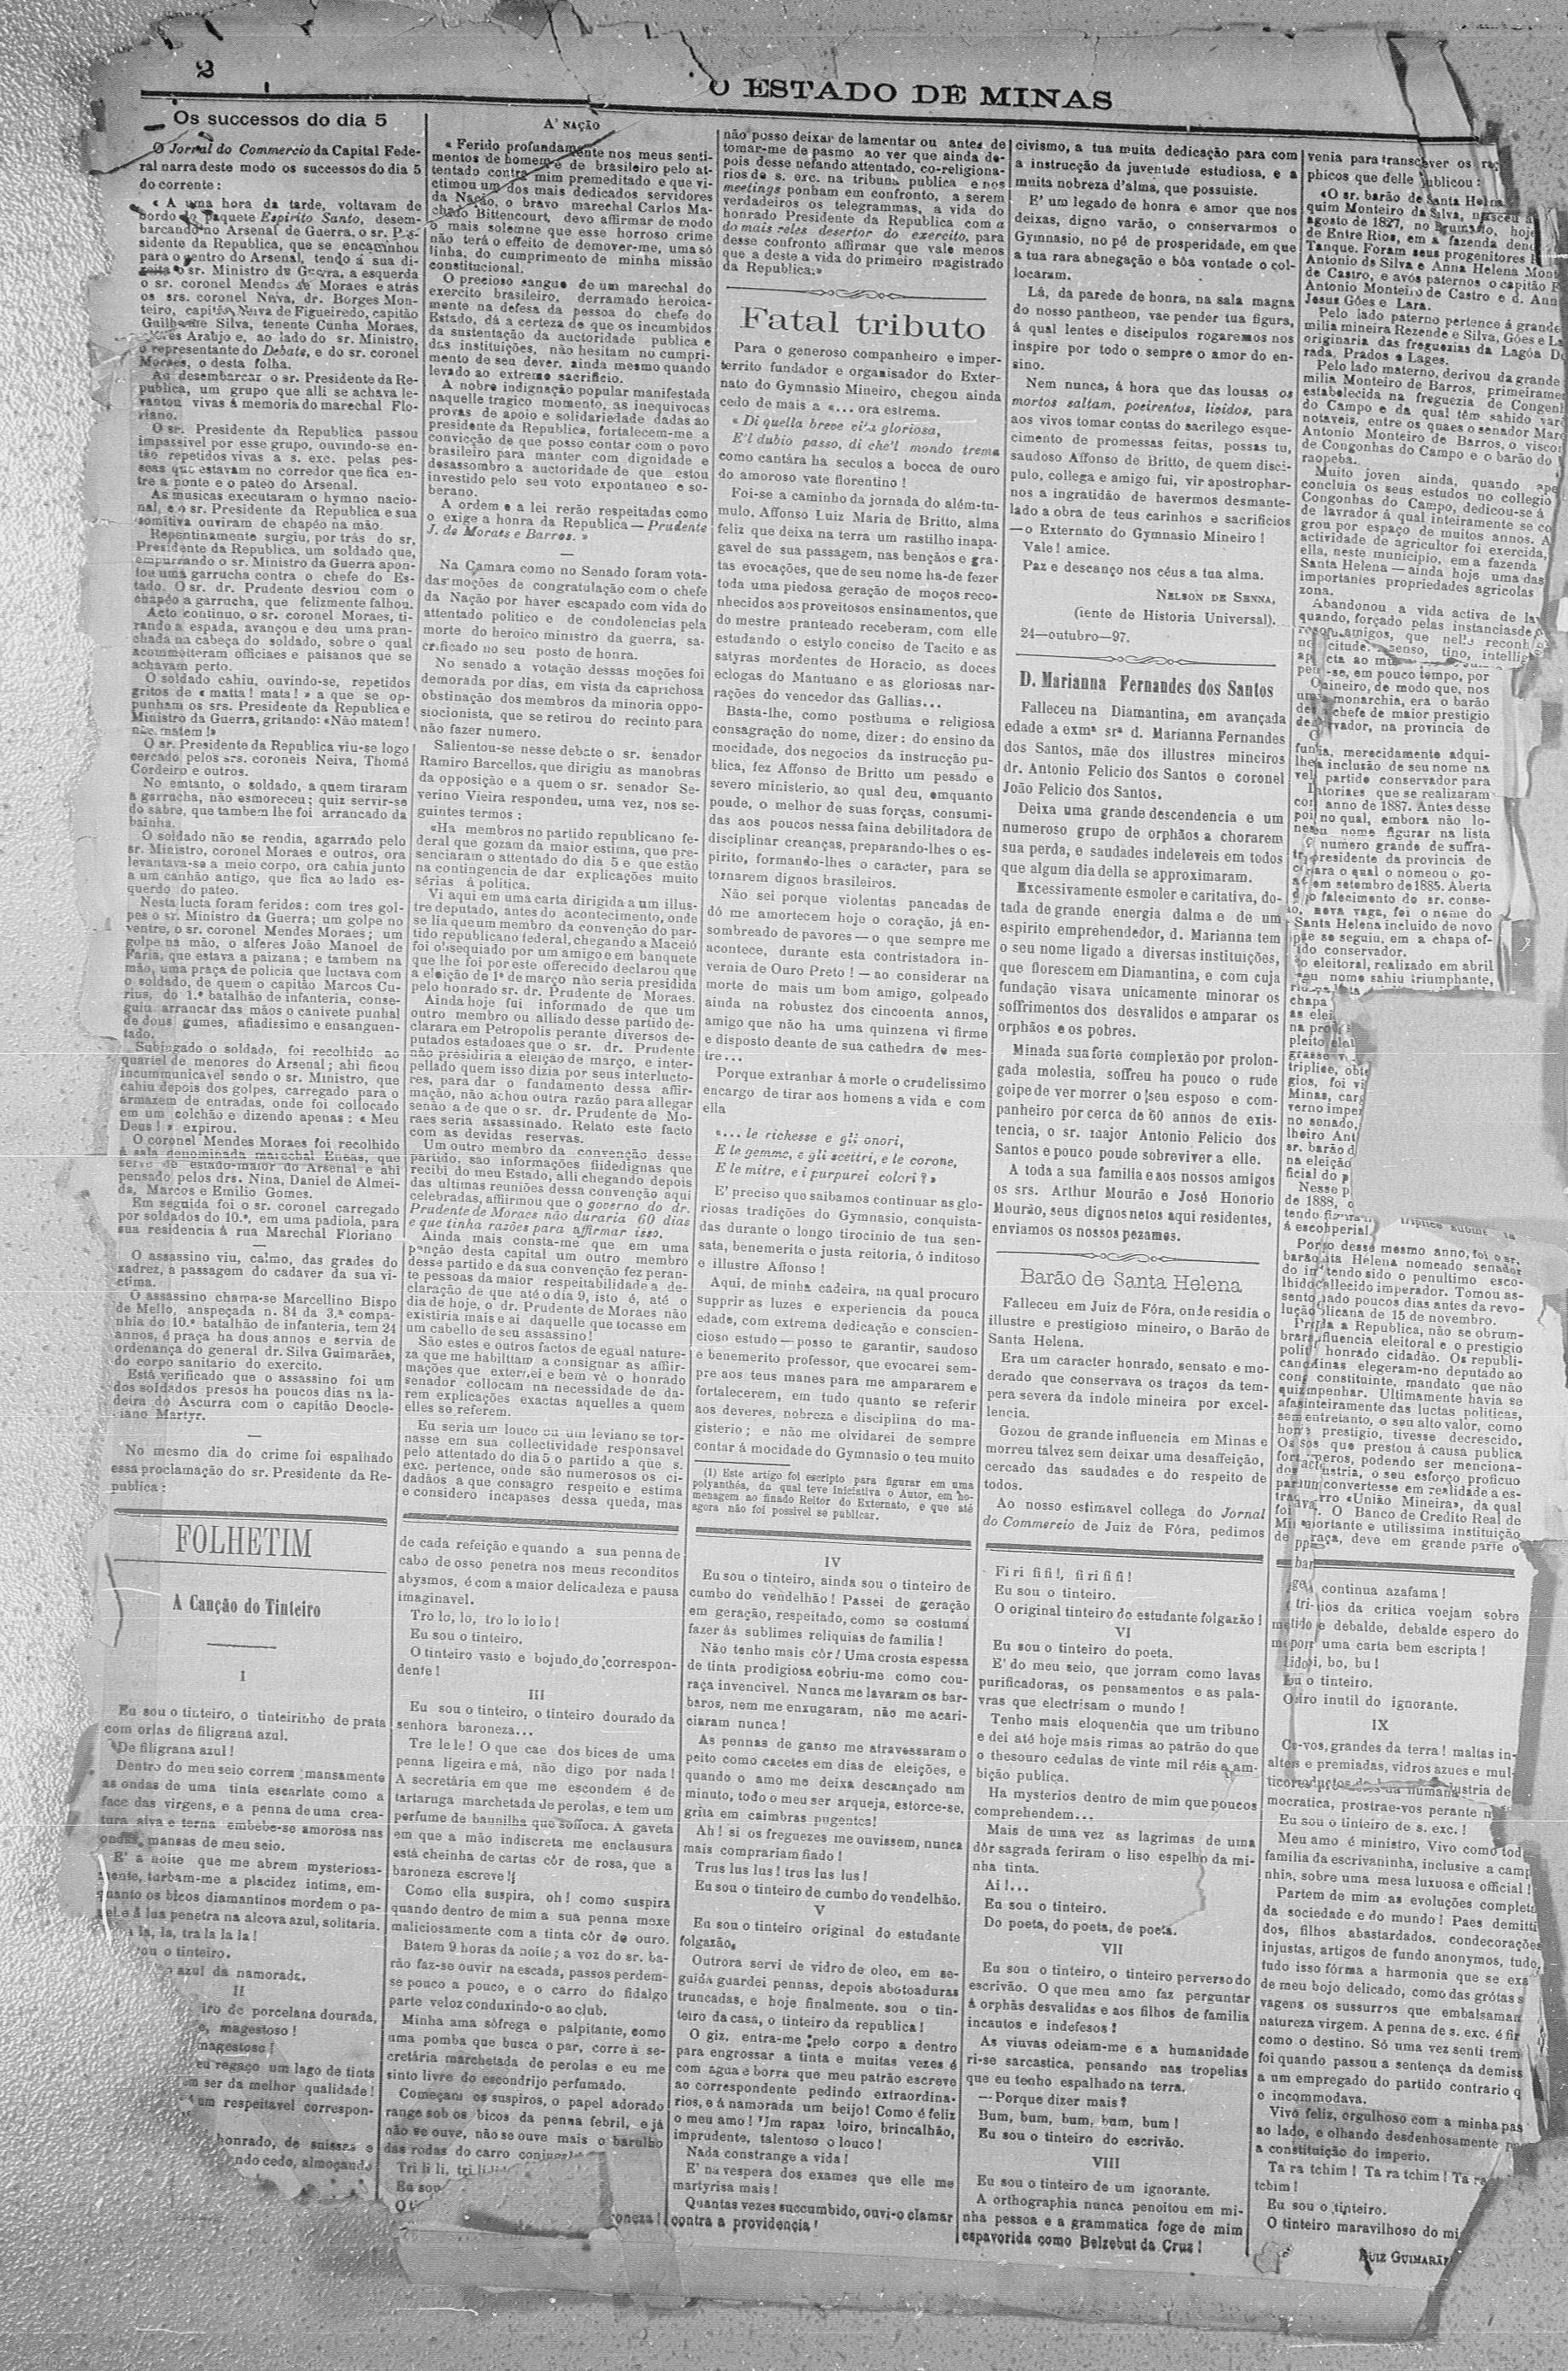 2
O ESTADO DE MINAS
Os successos do dia 5
O Jornal do Commercio da Capital Fede-
ral narra deste modo os successos do dia 5
do corrente :
« A uma hora da tarde, voltavam de
bordo do paquete Espirito Santo, desem-
barcando no Arsenal de Guerra, o sr. Pre-
sidente da Republica, que se encaminhou
para o centro do Arsenal, tendo á sua di-
reita o sr. Ministro da Guerra, a esquerda
o sr. coronel Mendes de Moraes e atrás
os srs. coronel Neiva, dr. Borges Mon-
teiro, capitão Neiva de Figueiredo, capitão
Guilherme Silva, tenente Cunha Moraes,
Araujo e, ao lado do sr. Ministro,
o representante do Debate, e do sr. coronel
Moraes, o desta folha.
Ao desembarcar o sr. Presidente da Re-
publica, um grupo que alli se achava le-
vantou vivas á memoria do marechal Flo-
riano.
O sr. Presidente da Republica passou
impassivel por esse grupo, ouvindo-se en-
tão repetidos vivas a s. exc. pelas pes-
soas que estavam no corredor que fica en-
tre a ponte e o pateo do Arsenal.
As musicas executaram o hymno nacio-
nal, e o sr. Presidente da Republica e sua
comitiva ouviram de chapéo na mão.
Repentinamente surgiu, por trás do sr.
Presidente da Republica, um soldado que,
empurrando o sr. Ministro da Guerra apon-
tou uma garrucha contra o chefe do Es-
tado. O sr. dr. Prudente desviou com o
chapéo a garrucha, que felizmente falhou.
Acto continuo, o sr. coronel Moraes, ti-
rando a espada, avançou e deu uma pran-
chada na cabeça do soldado, sobre o qual
acommetteram officiaes e paisanos que se
achavam perto.
O soldado cahiu, ouvindo-se, repetidos
gritos de « matta ! mata ! » a que se op-
punham os srs. Presidente da Republica e
Ministro da Guerra, gritando: «Não matem !
não matem !»
O sr. Presidente da Republica viu-se logo
cercado pelos srs. coroneis Neiva, Thomé
Cordeiro e outros.
No emtanto, o soldado, a quem tiraram
a garrucha, não esmoreceu; quiz servir-se
do sabre, que tambem lhe foi arrancado da
bainha.
O soldado não se rendia, agarrado pelo
sr. Ministro, coronel Moraes e outros, ora
levantava-se a meio corpo, ora cahia junto
a um canhão antigo, que fica ao lado es-
querdo do pateo.
Nesta lucta foram feridos: com tres gol-
pes o sr. Ministro da Guerra; um golpe no
ventre, o sr. coronel Mendes Moraes; um
golpe na mão, o alferes João Manoel de
Faria, que estava a paizana; e tambem na
mão, uma praça de policia que luctava com
o soldado, de quem o capitão Marcos Cu-
rius, do 1.º batalhão de infanteria, conse-
guiu arrancar das mãos o canivete punhal
de dous gumes, afiadissimo e ensanguen-
tado.
Subjugado o soldado, foi recolhido ao
quartel de menores do Arsenal; ahi ficou
incummunicavel sendo o sr. Ministro, que
cahiu depois dos golpes, carregado para o
armazem de entradas, onde foi collocado
em um colchão e dizendo apenas : « Meu
Deus ! » expirou.
O coronel Mendes Moraes foi recolhido
á sala denominada marechal Enéas, que
serve de estado-maior do Arsenal e ahi
pensado pelos drs. Nina, Daniel de Almei-
da, Marcos e Emilio Gomes.
Em seguida foi o sr. coronel carregado
por soldados do 10.º, em uma padiola, para
sua residencia á rua Marechal Floriano
O assassino viu, calmo, das grades do
xadrez, a passagem do cadaver da sua vi-
ctima.
O assassino chama-se Marcellino Bispo
de Mello, anspeçada n. 84 da 3.ª compa-
nhia do 10.º batalhão de infanteria, tem 24
annos, é praça ha dous annos e servia de
ordenança do general dr. Silva Guimarães,
do corpo sanitario do exercito.
Está verificado que o assassino foi um
dos soldados presos ha poucos dias na la-
deira do Ascurra com o capitão Deocle-
ciano Martyr.
No mesmo dia do crime foi espalhado
essa proclamação do sr. Presidente da Re-
publica :
A' NAÇÃO
« Ferido profundamente nos meus senti-
mentos de homem e de brasileiro pelo at-
tentado contra mim premeditado e que vi-
ctimou um dos mais dedicados servidores
da Nação, o bravo marechal Carlos Ma-
chado Bittencourt, devo affirmar de modo
o mais solemne que esse horroso crime
não terá o effeito de demover-me, uma só
linha, do cumprimento de minha missão
constitucional.
O precioso sangue de um marechal do
exercito brasileiro, derramado heroica-
mente na defesa da pessoa do chefe do
Estado, dá a certeza de que os incumbidos
da sustentação da auctoridade publica e
das instituições, não hesitam no cumpri-
mento de seu dever, ainda mesmo quando
levado ao extremo sacrificio.
A nobre indignação popular manifestada
naquelle tragico momento, as inequivocas
provas de apoio e solidariedade dadas ao
presidente da Republica, fortalecem-me a
convicção de que posso contar com o povo
brasileiro para manter com dignidade e
desassombro a auctoridade de que estou
investido pelo seu voto expontaneo e so-
berano.
A ordem e a lei rerão respeitadas como
o exige a honra da Republica — Prudente
J. de Moraes e Barros. »
Na Camara como no Senado foram vota-
das moções de congratulação com o chefe
da Nação por haver escapado com vida do
attentado politico e de condolencias pela
morte do heroico ministro da guerra, sa-
crificado no seu posto de honra.
No senado a votação dessas moções foi
demorada por dias, em vista da caprichosa
obstinação dos membros da minoria oppo-
siocionista, que se retirou do recinto para
não fazer numero.
Salientou-se nesse debate o sr. senador
Ramiro Barcellos, que dirigiu as manobras
da opposição e a quem o sr. senador Se-
verino Vieira respondeu, uma vez, nos se-
guintes termos :
«Ha membros no partido republicano fe-
deral que gozam da maior estima, que pre-
senciaram o attentado do dia 5 e que estão
na contingencia de dar explicações muito
sérias á politica.
Vi aqui em uma carta dirigida a um illus-
tre deputado, antes do acontecimento, onde
se lia que um membro da convenção do par-
tido republicano federal, chegando a Maceió
foi obsequiado por um amigo e em banquete
que lhe foi por este offerecido declarou que
a eleição de 1º de março não seria presidida
pelo honrado sr. dr. Prudente de Moraes.
Ainda hoje fui informado de que um
outro membro ou alliado desse partido de-
clarara em Petropolis perante diversos de-
putados estadoaes que o sr. dr. Prudente
não presidiria a eleição de março, e inter-
pellado quem isso dizia por seus interlucto-
res, para dar o fundamento dessa affir-
mação, não achou outra razão para allegar
senão a de que o sr. dr. Prudente de Mo-
raes seria assassinado. Relato este facto
com as devidas reservas.
Um outro membro da convenção desse
partido, são informações fiidedignas que
recibi do meu Estado, alli chegando depois
das ultimas reuniões dessa convenção aqui
celebradas, affiirmou que o governo do dr.
Prudente de Moraes não duraria 60 dias
e que tinha razões para affirmar isso.
Ainda mais consta-me que em uma
panção desta capital um outro membro
desse partido e da sua convenção fez peran-
te pessoas da maior respeitabilidade a de-
claração de que até o dia 9, isto é, até o
dia de hoje, o dr. Prudente de Moraes não
existiria mais e ai daquelle que tocasse em
um cabello de seu assassino!
São estes e outros factos de egual nature-
za que me habilitam a consignar as affiir-
mações que externei e bem vê o honrado
senador collocam na necessidade de da-
rem explicações exactas aquelles a quem
elles se referem.
Eu seria um louco ou um leviano se tor-
nasse em sua collectividade responsavel
pelo attentado do dia 5 o partido a que s.
exc. pertence, onde são numerosos os ci-
dadãos a que consagro respeito e estima
e considero incapases dessa queda, mas
não posso deixar de lamentar ou antes de
tomar-me de pasmo ao ver que ainda de-
pois desse nefando attentado, co-religiona-
rios de s. exc. na tribuna publica e nos
meetings ponham em confronto, a serem
verdadeiros os telegrammas, a vida do
honrado Presidente da Republica com a
do mais reles desertor do exercito, para
desse confronto affirmar que vale menos
que a deste a vida do primeiro magistrado
da Republica.»
Fatal tributo
Para o generoso companheiro e imper-
territo fundador e organisador do Exter-
nato do Gymnasio Mineiro, chegou ainda
cedo de mais a «... ora estrema.
« Di quella breve vita gloriosa,
E'l dubio passo, di che'l mondo trema
como cantára ha seculos a bocca de ouro
do amoroso vate florentino !
Foi-se a caminho da jornada do além-tu-
mulo, Affonso Luiz Maria de Britto, alma
feliz que deixa na terra um rastilho inapa-
gavel de sua passagem, nas benções e gra-
tas evocações, que de seu nome ha-de fazer
toda uma piedosa geração de moços reco-
nhecidos aos proveitosos ensinamentos, que
do mestre pranteado receberam, com elle
estudando o estylo conciso de Tacito e as
satyras mordentes de Horacio, as doces
eclogas do Mantuano e as gloriosas nar-
rações do vencedor das Gallias...
Basta-lhe, como posthuma e religiosa
consagração do nome, dizer : do ensino da
mocidade, dos negocios da instrucção pu-
blica, fez Affonso de Britto um pesado e
severo ministerio, ao qual deu, emquanto
poude, o melhor de suas forças, consumi-
das aos poucos nessa faina debilitadora de
disciplinar creanças, preparando-lhes o es-
pirito, formando-lhes o caracter, para se
tornarem dignos brasileiros.
Não sei porque violentas pancadas de
dó me amortecem hoje o coração, já en-
sombreado de pavores — o que sempre me
acontece, durante esta contristadora in-
vernia de Ouro Preto ! — ao considerar na
morte do mais um bom amigo, golpeado
ainda na robustez dos cincoenta annos,
amigo que não ha uma quinzena vi firme
e disposto deante de sua cathedra de mes-
tre...
Porque extranhar á morte o crudelissimo
encargo de tirar aos homens a vida e com
ella
«... le richesse e gli onori,
E le gemme, e gli scetiri, e le corone,
E le mitre, e i purpurei colori ?»
E' preciso que saibamos continuar as glo-
riosas tradições do Gymnasio, conquista-
das durante o longo tirocinio de tua sen-
sata, benemerita e justa reitoria, ó inditoso
e illustre Affonso !
Aqui, de minha cadeira, na qual procuro
supprir as luzes e experiencia da pouca
edade, com extrema dedicação e conscien-
cioso estudo — posso te garantir, saudoso
e benemerito professor, que evocarei sem-
pre aos teus manes para me ampararem e
fortalecerem, em tudo quanto se referir
aos deveres, nobreza e disciplina do ma-
gisterio ; e não me olvidarei de sempre
contar á mocidade do Gymnasio o teu muito
(1) Este artigo foi escripto para figurar em uma
polyanthéa, da qual teve iniciativa o Autor, em ho-
menagem ao finado Reitor do Externato, e que até
agora não foi possivel se publicar.
civismo, a tua muita dedicação para com
a instrucção da juventude estudiosa, e a
muita nobreza d'alma, que possuiste.
E' um legado de honra e amor que nos
deixas, digno varão, o conservarmos o
Gymnasio, no pé de prosperidade, em que
a tua rara abnegação e bôa vontade o col-
locaram.
Lá, da parede de honra, na sala magna
do nosso pantheon, vae pender tua figura,
á qual lentes e discipulos rogaremos nos
inspire por todo o sempre o amor do en-
sino.
Nem nunca, á hora que das lousas os
mortos saltam, poeirentos, lividos, para
aos vivos tomar contas do sacrilego esque-
cimento de promessas feitas, possas tu,
saudoso Affonso de Britto, de quem disci-
pulo, collega e amigo fui, vir apostrophar-
nos a ingratidão de havermos desmante-
lado a obra de teus carinhos e sacrificios
— o Externato do Gymnasio Mineiro !
Vale ! amice.
Paz e descanço nos céus a tua alma.
NELSON DE SENNA,
(lente de Historia Universal).
24—outubro—97.
D. Marianna Fernandes dos Santos
Falleceu na Diamantina, em avançada
edade a exmª srª d. Marianna Fernandes
dos Santos, mãe dos illustres mineiros
dr. Antonio Felicio dos Santos e coronel
João Felicio dos Santos.
Deixa uma grande descendencia e um
numeroso grupo de orphãos a chorarem
sua perda, e saudades indeleveis em todos
que algum dia della se approximaram.
Excessivamente esmoler e caritativa, do-
tada de grande energia dalma e de um
espirito emprehendedor, d. Marianna tem
o seu nome ligado a diversas instituições,
que florescem em Diamantina, e com cuja
fundação visava unicamente minorar os
soffrimentos dos desvalidos e amparar os
orphãos e os pobres.
Minada sua forte complexão por prolon-
gada molestia, soffreu ha pouco o rude
golpe de ver morrer o seu esposo e com-
panheiro por cerca de 60 annos de exis-
tencia, o sr. major Antonio Felicio dos
Santos e pouco poude sobreviver a elle.
A toda a sua familia e aos nossos amigos
os srs. Arthur Mourão e José Honorio
Mourão, seus dignos netos aqui residentes,
enviamos os nossos pezames.
Barão de Santa Helena
Falleceu em Juiz de Fóra, onde residia o
illustre e prestigioso mineiro, o Barão de
Santa Helena.
Era um caracter honrado, sensato e mo-
derado que conservava os traços da tem-
pera severa da indole mineira por excel-
lencia.
Gozou de grande influencia em Minas e
morreu talvez sem deixar uma desaffeição,
cercado das saudades e do respeito de
todos.
Ao nosso estimavel collega do Jornal
do Commercio de Juiz de Fóra, pedimos
venia para transcrever os
phicos que delle publicou :
«O sr. barão de Santa Helena
quim Monteiro da Silva, nasceu a
agosto de 1827, no Brumado, hoje
de Entre Rios, em a fazenda
Tanque. Foram seus progenitores
Antonio da Silva e Anna Helena
de Castro, e avós paternos o capitão
Antonio Monteiro de Castro e d. Ann
Jesus Góes e Lara.
Pelo lado paterno pertence á grande
milia mineira Rezende e Silva, Góes e
originaria das freguezias da Lagôa
rada, Prados e Lages.
Pelo lado materno, derivou da grande
milia Monteiro de Barros, primeiramen
estabelecida na freguezia de Congonh
do Campo e da qual têm sahido
notaveis, entre os quaes o senador
Antonio Monteiro de Barros, o viscon
de Congonhas do Campo e o barão do
raopeba.
Muito joven ainda, quando ape
concluia os seus estudos no collegio
Congonhas do Campo, dedicou-se á
de lavrador á qual inteiramente se
grou por espaço de muitos annos. A
actividade de agricultor foi exercida,
ella, neste municipio, em a fazenda
Santa Helena — ainda hoje uma das
importantes propriedades agricolas
zona.
Abandonou a vida activa de
quando, forçado pelas instancias de
amigos, que nelle reconh
senso, tino, intellig
cta ao
se, em pouco tempo, por
mineiro, de modo que, nos
monarchia, era o barão
chefe de maior prestigio
vador, na provincia de
merecidamente adqui-
inclusão de seu nome na
partido conservador para
que se realizaram
anno de 1887. Antes desse
no qual, embora não lo-
nome figurar na lista
numero grande de suffra-
presidente da provincia de
para o qual o nomeou o go-
em setembro de 1885. Aberta
o falecimento do sr. conse-
nova vaga, foi o nome do
Santa Helena incluido de novo
que se seguiu, em a chapa of-
do conservador.
eleitoral, realizado em abril
seu nome sahiu triumphante,
chapa
as elei
pleito
triplice,
gios, foi
Minas,
verno
no senado,
lheiro
sr. barão
na eleição
ficial do
Nesse
de 1888,
tendo
á escolha
Porto desse mesmo anno, foi o sr.
Helena nomeado senador
tendo sido o penultimo esco-
fallecido imperador. Tomou as-
poucos dias antes da revo-
de 15 de novembro.
a Republica, não se obrum-
influencia eleitoral e o prestigio
honrado cidadão. Os republi-
elegeram-no deputado ao
constituinte, mandato que não
Ultimamente havia se
inteiramente das luctas politicas,
entretanto, o seu alto valor, como
prestigio, tivesse decrescido.
que prestou á causa publica
podendo ser menciona-
o seu esforço proficuo
convertesse em realidade a es-
«União Mineira», da qual
O Banco de Credito Real de
importante e utilissima instituição
deve em grande parte o
FOLHETIM
A Canção do Tinteiro
I
Eu sou o tinteiro, o tinteirinho de prata
com orlas de filigrana azul.
De filigrana azul !
Dentro do meu seio correm mansamente
as ondas de uma tinta escarlate como a
face das virgens, e a penna de uma crea-
tura alva e terna embebe-se amorosa nas
ondas mansas de meu seio.
E' a noite que me abrem mysteriosa-
mente, turbam-me a placidez intima, em-
quanto os bicos diamantinos mordem o pa-
pel e a lua penetra na alcova azul, solitaria.
la, la, tra la la la !
sou o tinteiro.
azul da namorada.
II
de porcelana dourada,
magestoso !
magestoso !
regaço um lago de tinta
ser da melhor qualidade !
um respeitavel correspon-
honrado, de suissas e
cedo, almoçando
de cada refeição e quando a sua penna de
cabo de osso penetra nos meus reconditos
abysmos, é com a maior delicadeza e pausa
imaginavel.
Tro lo, lo, tro lo lo lo !
Eu sou o tinteiro.
O tinteiro vasto e bojudo do correspon-
dente !
III
Eu sou o tinteiro, o tinteiro dourado da
senhora baroneza...
Tre le le ! O que cae dos bices de uma
penna ligeira e má, não digo por nada !
A secretária em que me escondem é de
tartaruga marchetada de perolas, e tem um
perfume de baunilha que soffoca. A gaveta
em que a mão indiscreta me enclausura
está cheinha de cartas côr de rosa, que a
baroneza escreve !
Como ella suspira, oh ! como suspira
quando dentro de mim a sua penna mexe
maliciosamente com a tinta côr de ouro.
Batem 9 horas da noite ; a voz do sr. ba-
rão faz-se ouvir na escada, passos perdem-
se pouco a pouco, e o carro do fidalgo
parte veloz conduxindo-o ao club.
Minha ama sôfrega e palpitante, como
uma pomba que busca o par, corre á se-
cretária marchetada de perolas e eu me
sinto livre do escondrijo perfumado.
Começam os suspiros, o papel adorado
range sob os bicos da penna febril, e já
não se ouve, não se ouve mais o barulho
das rodas do carro
Tri li li, tri
Eu sou
O
baroneza !
IV
Eu sou o tinteiro, ainda sou o tinteiro de
cumbo do vendelhão ! Passei de geração
em geração, respeitado, como se costuma
fazer ás sublimes reliquias de familia !
Não tenho mais côr ! Uma crosta espessa
de tinta prodigiosa cobriu-me como cou-
raça invencivel. Nunca me lavaram os bar-
baros, nem me enxugaram, não me acari-
ciaram nunca !
As pennas de ganso me atravessaram o
peito como cacetes em dias de eleições, e
quando o amo me deixa descançado um
minuto, todo o meu ser arqueja, estorce-se,
grita em caimbras pugentes!
Ah ! si os freguezes me ouvissem, nunca
mais comprariam fiado !
Trus lus lus ! trus lus lus !
Eu sou o tinteiro de cumbo do vendelhão.
V
Eu sou o tinteiro original do estudante
folgazão.
Outrora servi de vidro de oleo, em se-
guida guardei pennas, depois abotoaduras
truncadas, e hoje finalmente. sou o tin-
teiro da casa, o tinteiro da republica !
O giz, entra-me pelo corpo a dentro
para engrossar a tinta e muitas vezes é
com agua e borra que meu patrão escreve
ao correspondente pedindo extraordina-
rios, e á namorada um beijo! Como é feliz
o meu amo ! Um rapaz loiro, brincalhão,
imprudente, talentoso o louco !
Nada constrange a vida !
E' na vespera dos exames que elle me
martyrisa mais !
Quantas vezes succumbido, ouvi-o clamar
contra a providencia !
Fi ri fi fi !, fi ri fi fi !
Eu sou o tinteiro.
O original tinteiro do estudante folgazão !
VI
Eu sou o tinteiro do poeta.
E' do meu seio, que jorram como lavas
purificadoras, os pensamentos e as pala-
vras que electrisam o mundo !
Tenho mais eloquencia que um tribuno
e dei até hoje mais rimas ao patrão do que
o thesouro cedulas de vinte mil réis a am-
bição publica.
Ha mysterios dentro de mim que poucos
comprehendem...
Mais de uma vez as lagrimas de uma
dôr sagrada feriram o liso espelho da mi-
nha tinta.
Ai !...
Eu sou o tinteiro.
Do poeta, do poeta, de poeta.
VII
Eu sou o tinteiro, o tinteiro perverso do
escrivão. O que meu amo faz perguntar
á orphãs desvalidas e aos filhos de familia
incautos e indefesos !
As viuvas odeiam-me e a humanidade
ri-se sarcastica, pensando nas tropelias
que eu tenho espalhado na terra.
— Porque dizer mais ?
Bum, bum, bum, bum, bum !
Eu sou o tinteiro do escrivão.
VIII
Eu sou o tinteiro de um ignorante.
A orthographia nunca penoitou em mi-
nha pessoa e a grammatica foge de mim
espavorida como Belzebut da Cruz !
continua azafama !
da critica voejam sobre
e debalde, debalde espero do
uma carta bem escripta !
bi, bo, bu !
Eu o tinteiro.
inutil do ignorante.
IX
grandes da terra ! maltas in-
e premiadas, vidros azues e mul-
mocratica, prostrae-vos perante
Eu sou o tinteiro de s. exc. !
Meu amo é ministro, Vivo como tod
familia da escrivaninha, inclusive a camp
nhia, sobre uma mesa luxuosa e official !
Partem de mim as evoluções completa
da sociedade e do mundo ! Paes demitti
dos, filhos abastardados, condecorações
injustas, artigos de fundo anonymos, tudo,
tudo isso fórma a harmonia que se exa
de meu bojo delicado, como das grótas s
vagens os sussurros que embalsamam
natureza virgem. A penna de s. exc. é fir
como o destino. Só uma vez senti trem
foi quando passou a sentença da demiss
a um empregado do partido contrario q
o incommodava.
Vivo feliz, orgulhoso com a minha pas
ao lado, e olhando desdenhosamente
a constituição do imperio.
Ta ra tchim ! Ta ra tchim ! Ta ra
tchim !
Eu sou o tinteiro.
O tinteiro maravilhoso do mi
LUIZ GUIMARÃ